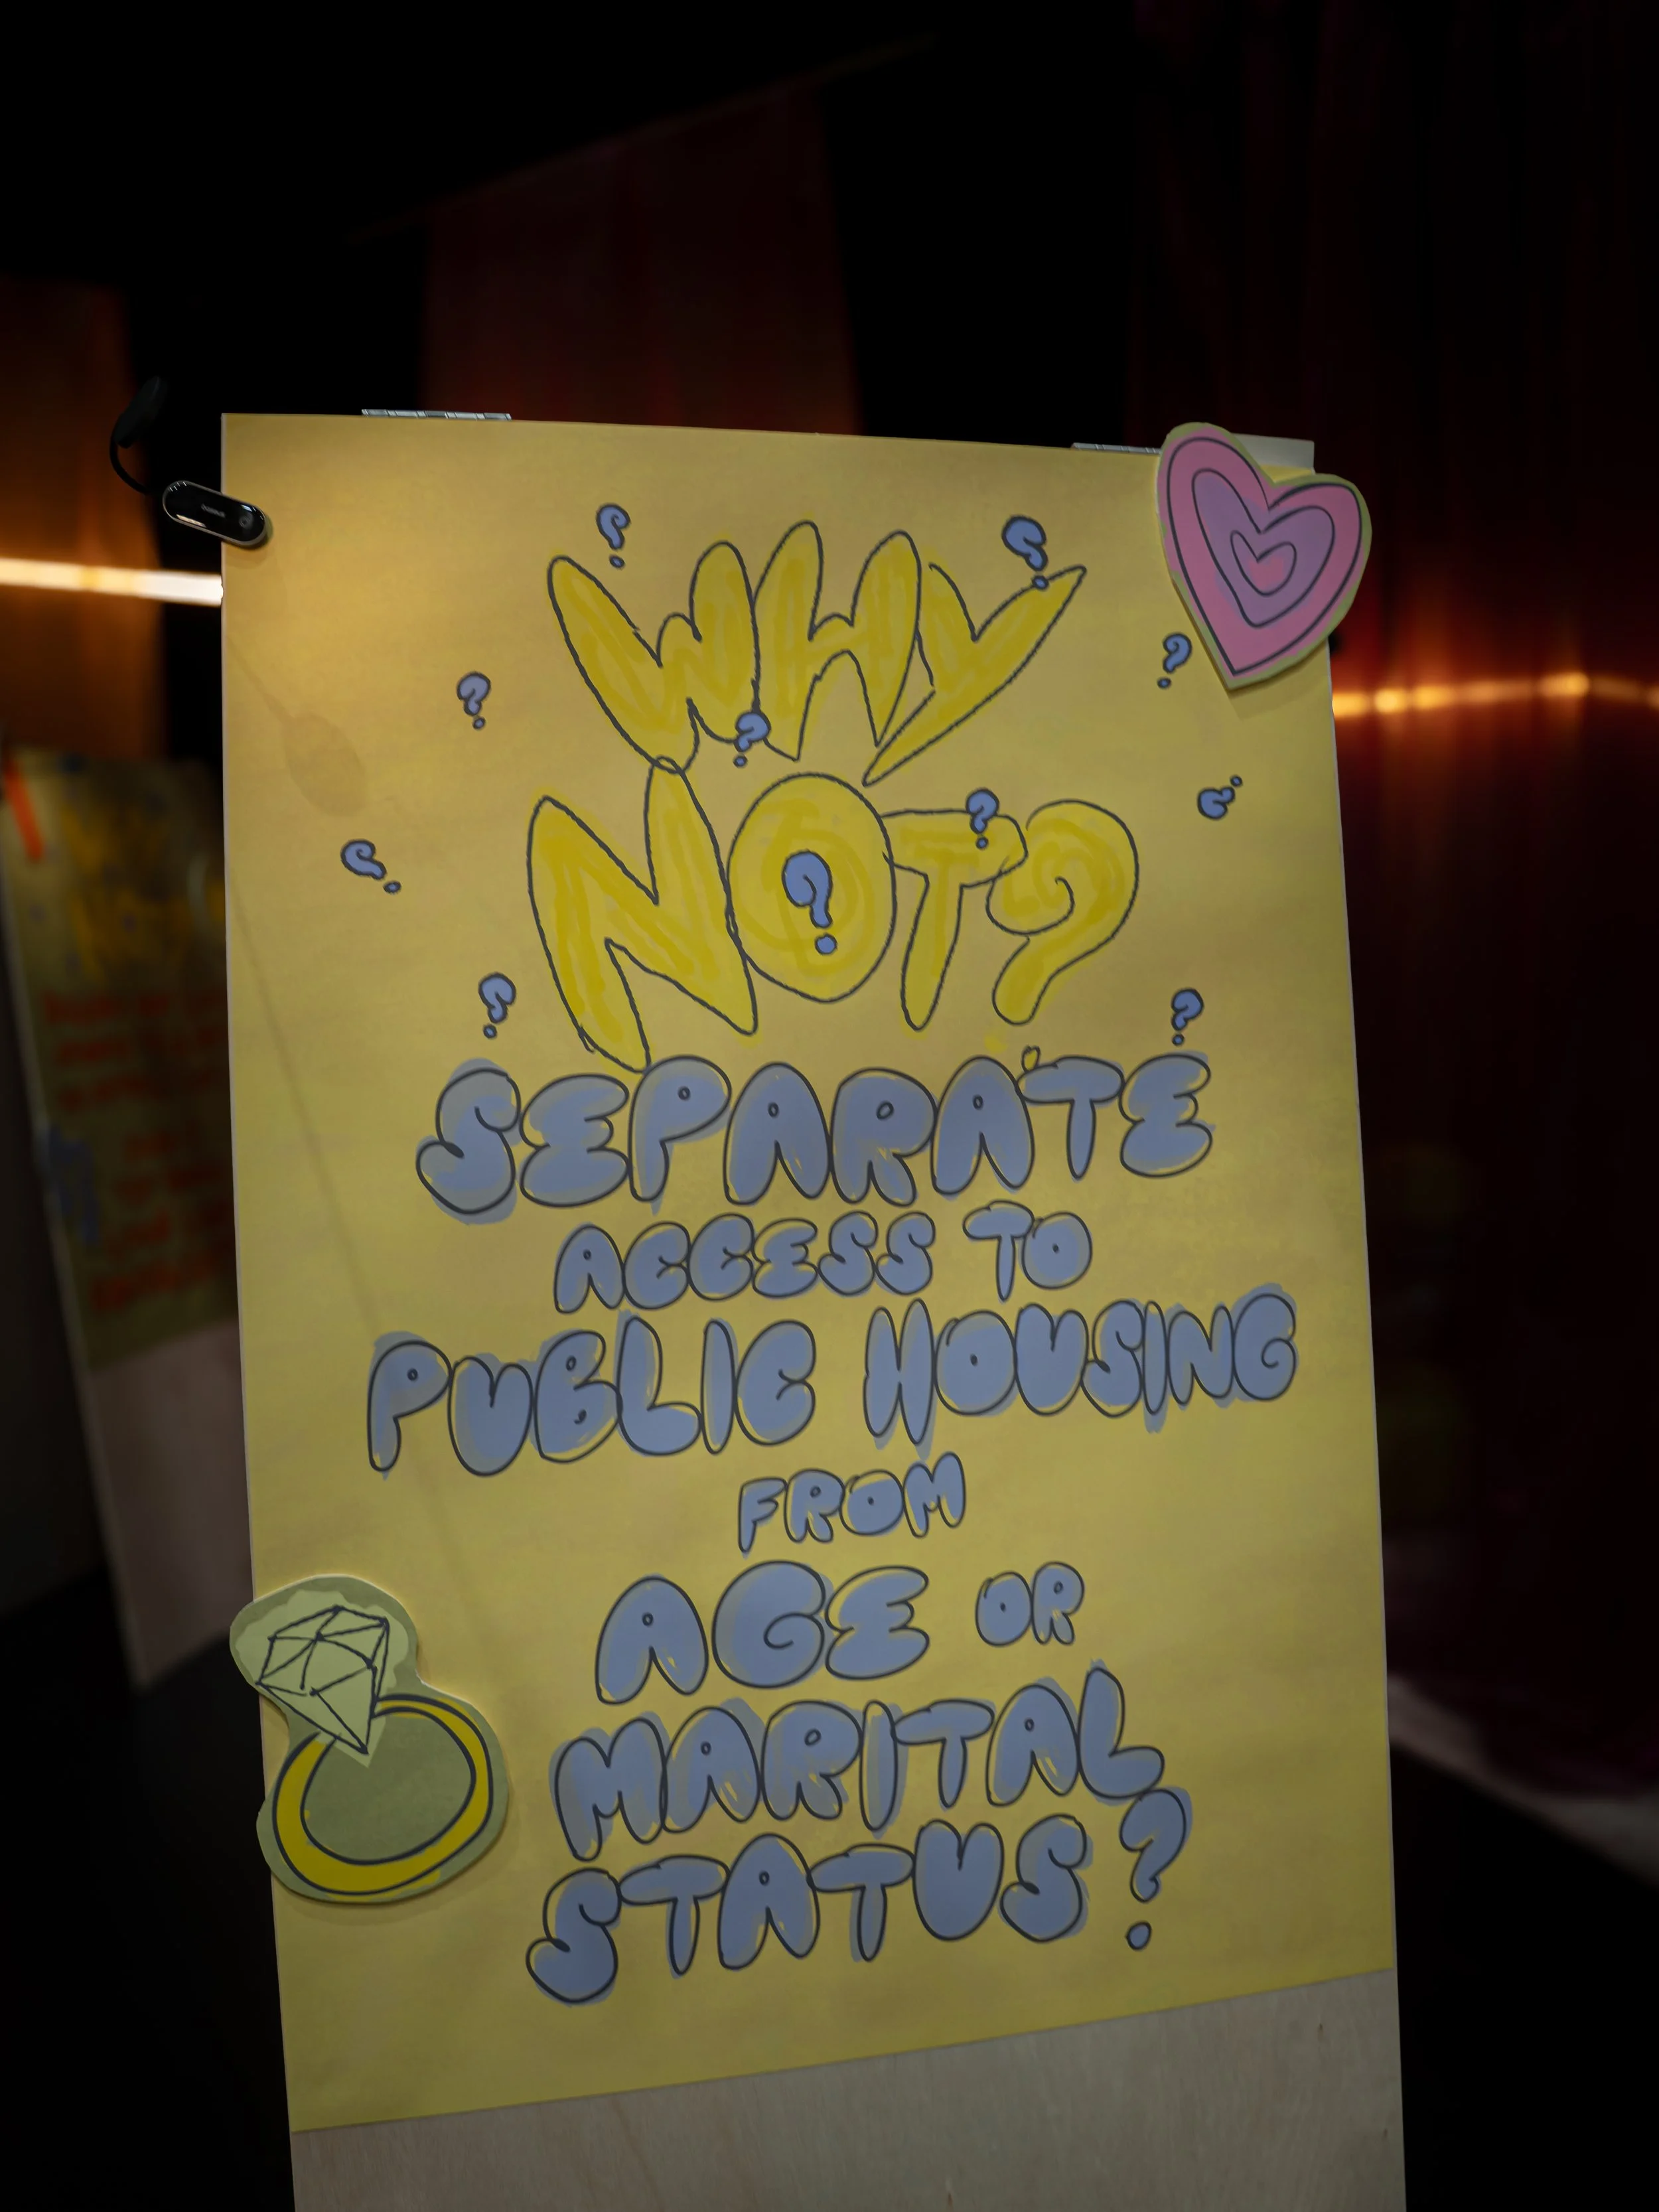 WHY
NOT?
SEPARATE
ACCESS TO
PUBLIC HOUSING
FROM
AGE OR
MARITAL
STATUS?